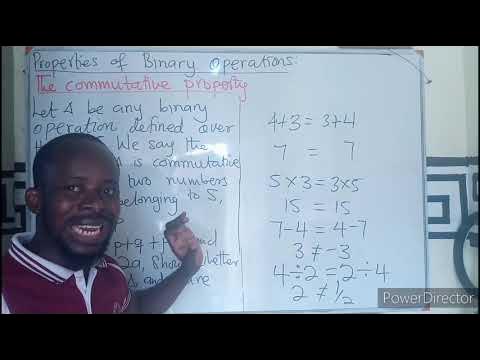 Properties of Binary Operations:
The commutative property
Let Δ be any binary
operation defined over
We say the
is commutative
two numbers
belonging to S,
p+q+
2a, Show
Δ, and
4+3 = 3+4
7 = 7
5 × 3 = 3×5
15 = 15
7-4 = 4-7
3 ≠ -3
4÷2 = 2÷4
2 ≠ 1/2
PowerDirector